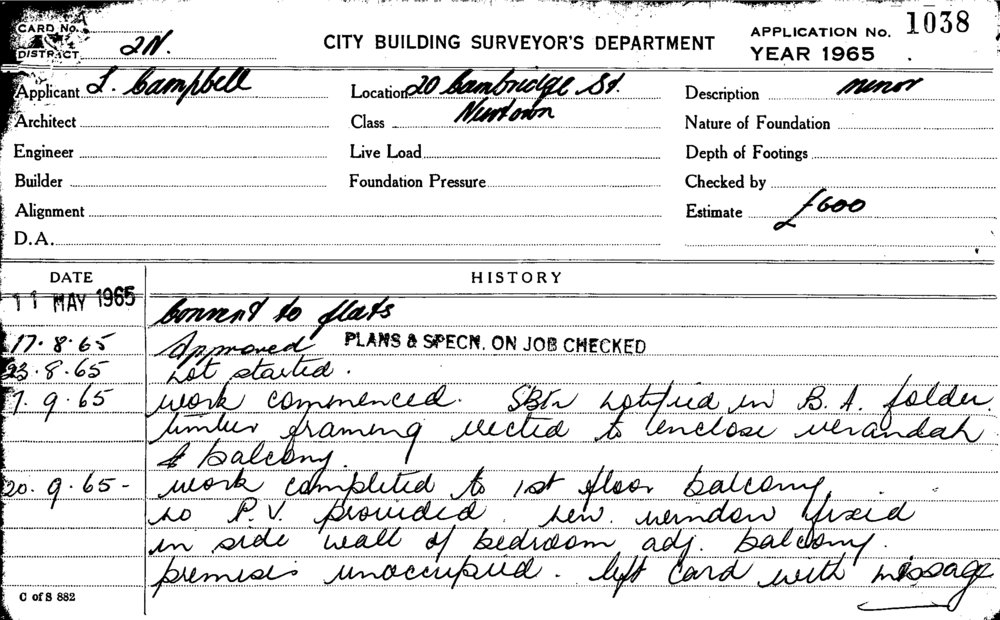 CARD No.
DISTRICT 2N.
CITY BUILDING SURVEYOR'S DEPARTMENT
APPLICATION No. 1038
YEAR 1965
Applicant L. Campbell
Location 20 Cambridge St.
Description minor
Architect
Class Newtown
Nature of Foundation
Engineer
Live Load
Depth of Footings
Builder
Foundation Pressure
Checked by
Alignment
Estimate £600
D.A.
DATE HISTORY
11 MAY 1965
Convert to flats
17.8.65 Approved PLANS & SPECN. ON JOB CHECKED
23.8.65 Not started.
7.9.65 work commenced. notified in B.A. folder.
timber framing erected to enclose verandah
& balcony.
20.9.65- work completed to 1st floor balcony
no P.V. provided. new window fixed
in side wall of bedroom adj. balcony.
premises unoccupied. left card with message
C of S 882